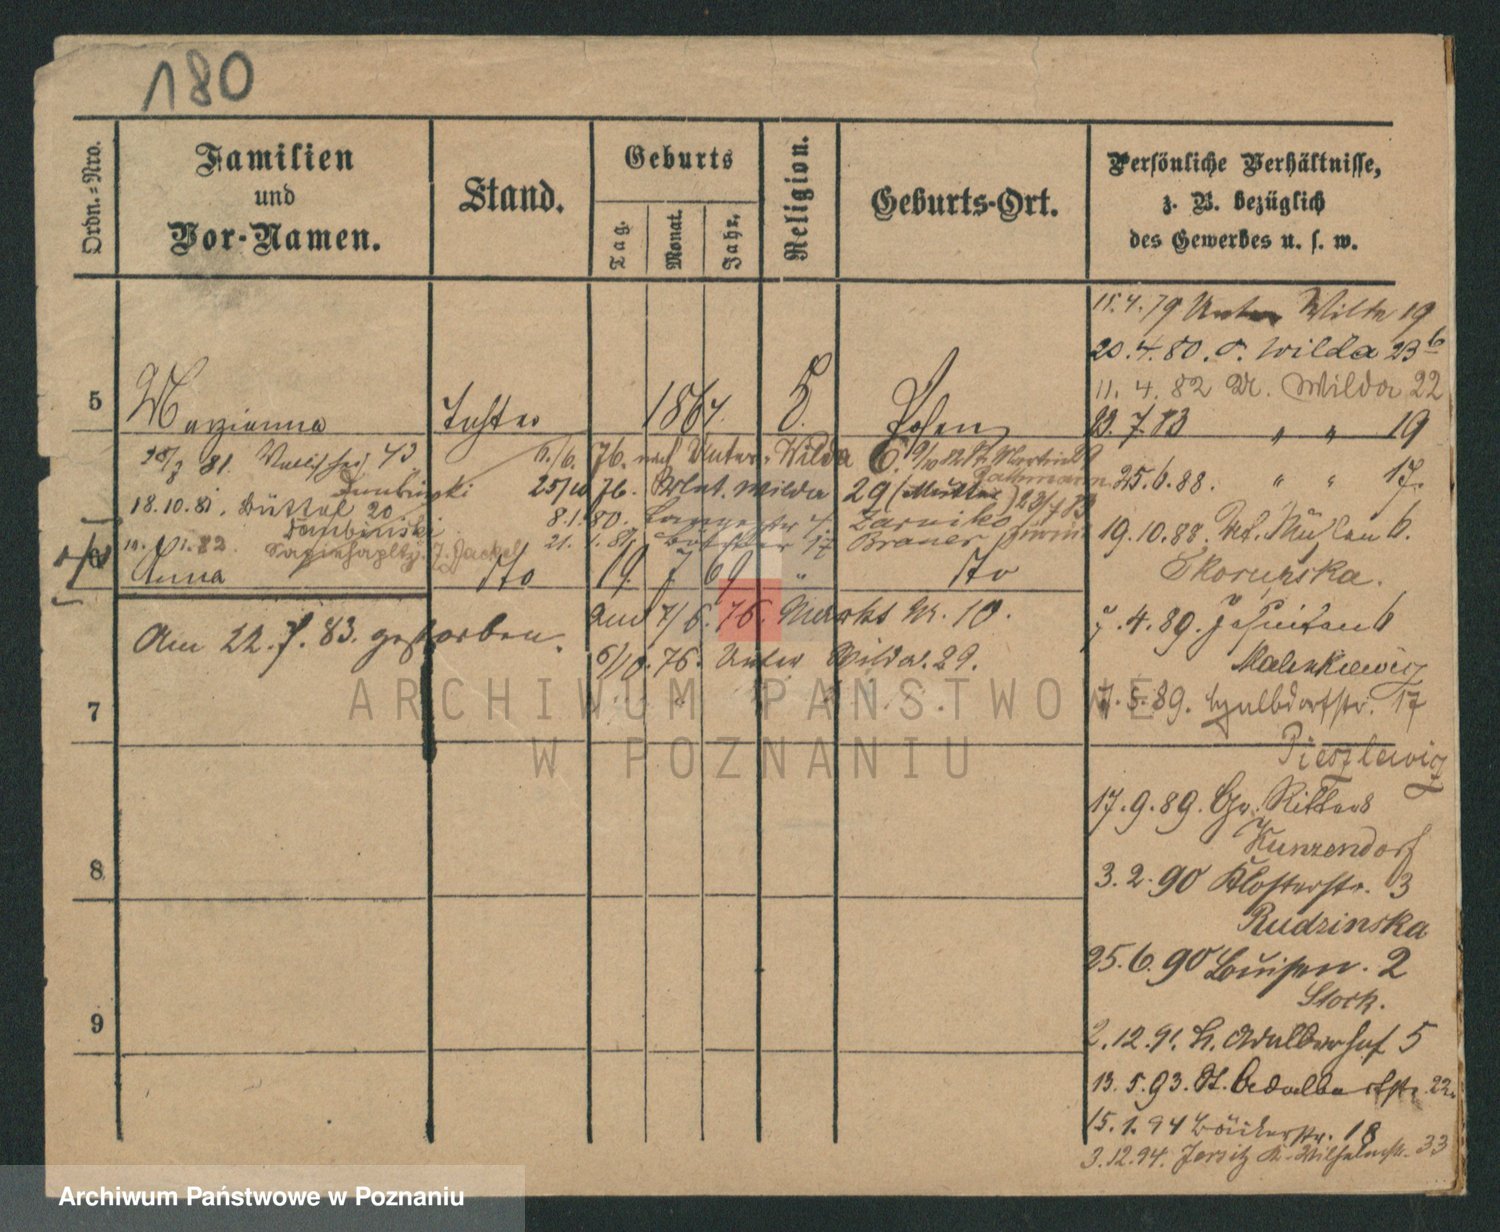 180
Ordn.=Nro.
Familien
und
Vor-Namen.
Stand.
Geburts
Tag.
Monat.
Jahr.
Religion.
Geburts-Ort.
Persönliche Verhältnisse,
z. B. bezüglich
des Gewerbes u. s. w.
15.4.79 Unter Wilda 19
20.4.80. O. Wilda 23b
11.4.82 U. Wilda 22
23.7.83 " " 19
5
Marianna
Tochter
1864.
Posen
81.
43
6./6. 76. nach Unter-Wilda 6.
Dembinski
25/10 76. Wilda 29 (Mutter) 23/7 83
25.6.88. " " 17.
18.10.81. Büttel 20
Dembinski
8.1.80. Zarniko
19.10.88. Mühlen 6.
Skorupska.
82.
21. 1. 81. 17 Brauer
6
Anna
dto
19 7 69 " dto
Am 22.7.83. gestorben.
and 7/6. 76. Markt Nr. 10.
7.4.89. Jesuiten 6
Malenkiewicz
6/10. 76. Unter Wilda. 29.
7
7.5.89. Halbdorfstr. 17
Pieszlewicz
17.9.89. Gr. Ritters
Kunzendorf
8
3.2.90 Klosterstr. 3
Rudzinska
25.6.90 Luisen. 2
Stock.
9
2.12.91. 5
13.5.93. St. Adalbertstr. 22.
15.1.94 Bäckerstr. 18
3.12.94. Jersitz K. Wilhelmstr. 33
ARCHIWUM PAŃSTWOWE
W POZNANIU
Archiwum Państwowe w Poznaniu